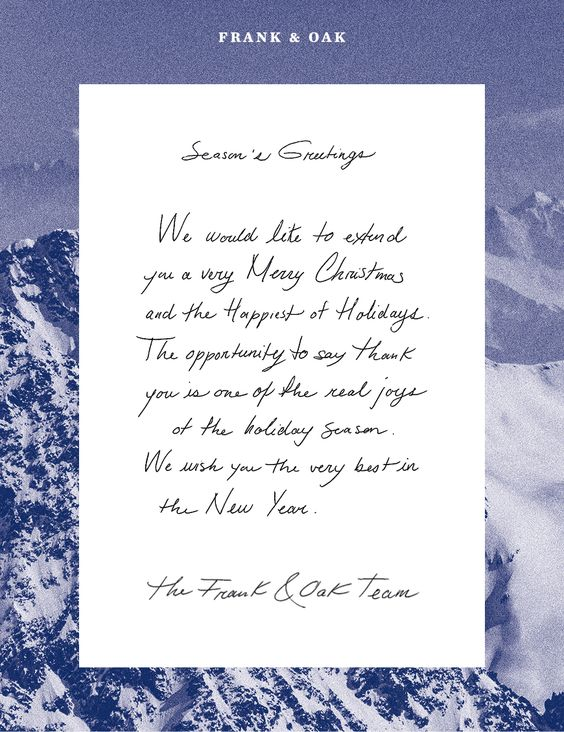 FRANK & OAK
Season's Greetings
We would like to extend
you a very Merry Christmas
and the Happiest of Holidays.
The opportunity to say thank
you is one of the real joys
of the holiday season.
We wish you the very best in
the New Year.
the Frank & Oak Team